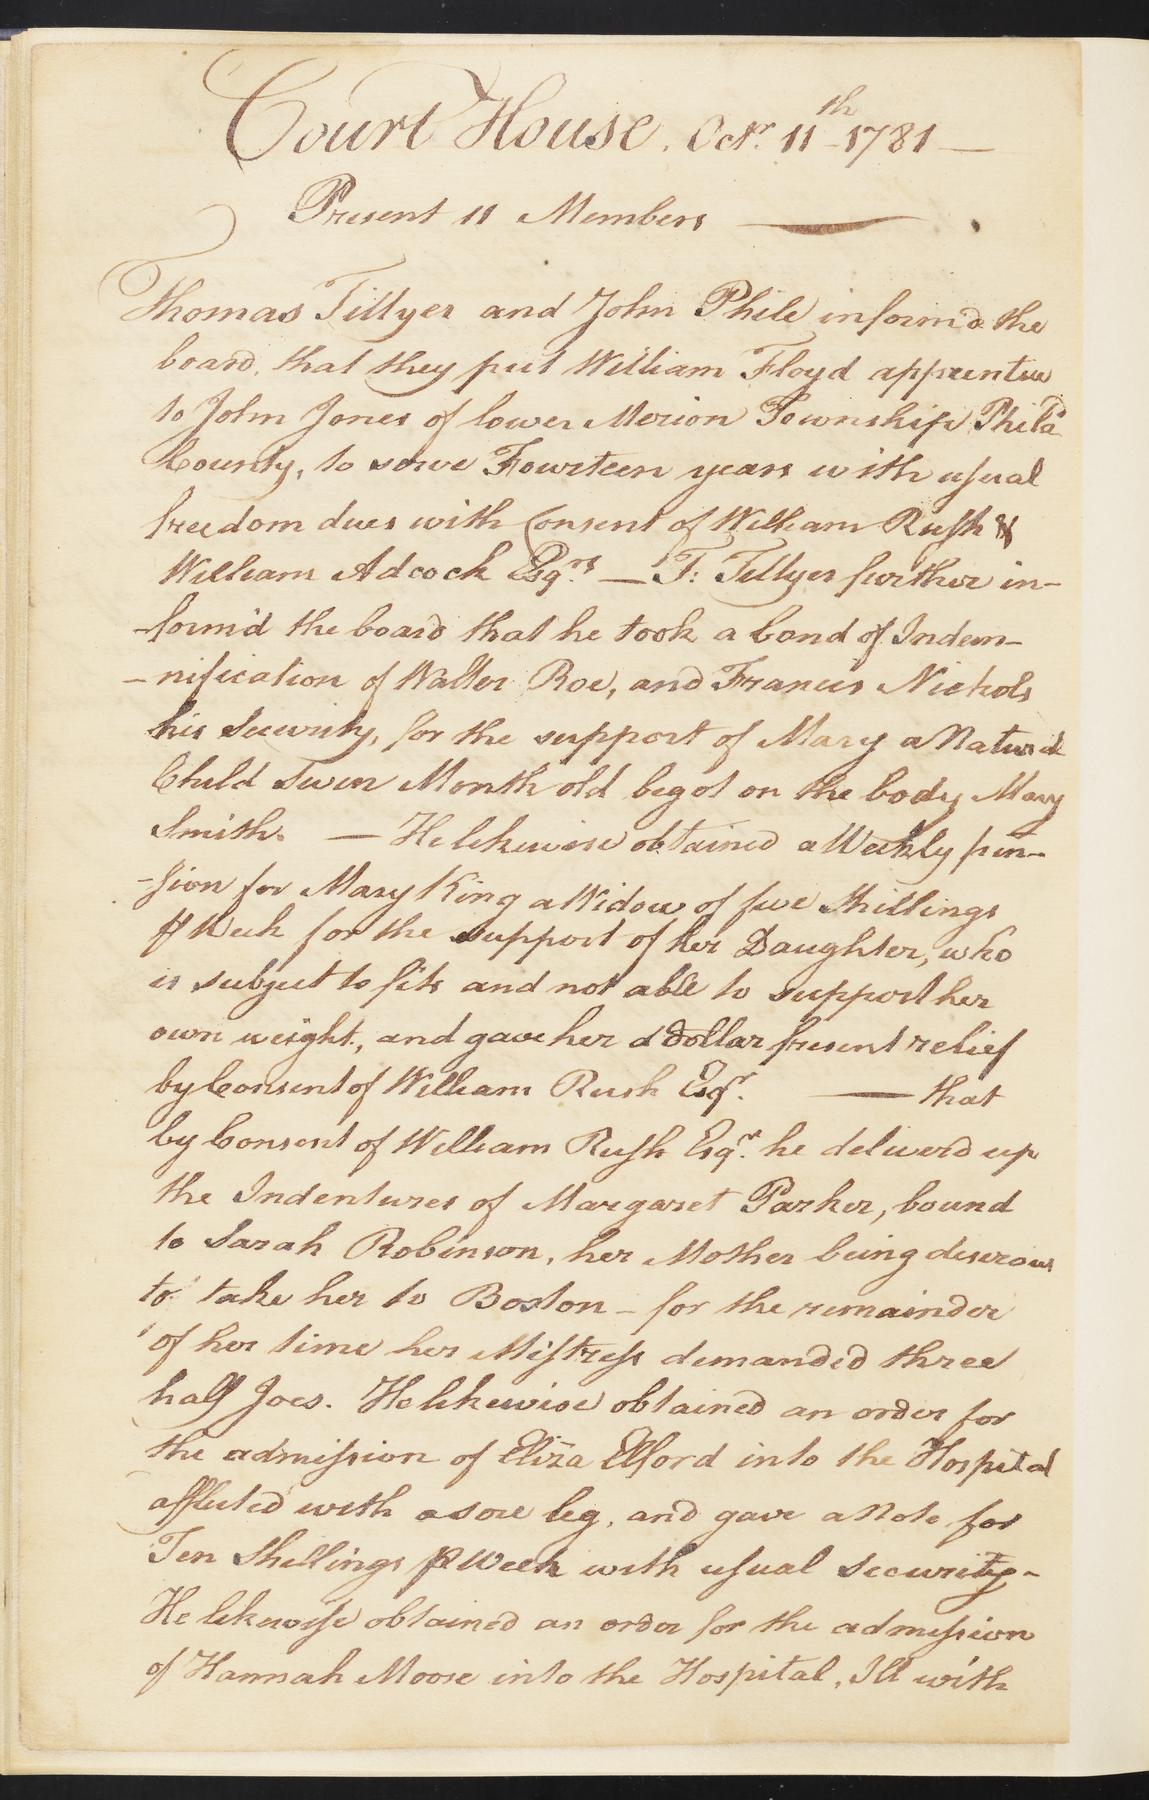 Court House. Octr. 11th 1781 —
Present 11 Members —
Thomas Tillyer and John Phile inform'd the
board, that they put William Floyd apprentice
to John Jones of lower Merion Township Phila
County, to serve Fourteen years with usual
freedom dues with Consent of William Rush &
William Adcock Esqrs. — T: Tillyer further in-
-form'd the board that he took a bond of Indem-
-nification of Walter Roe, and Francis Nichols
his Security, for the support of Mary a Natural
Child seven Month old begot on the body Mary
Smith. — He likewise obtained a Weekly pen-
-sion for Mary King a Widow of five Shillings
⅌ Week for the support of her Daughter, who
is subject to fits and not able to support her
own weight, and gave her a dollar present relief
by Consent of William Rush Esqr. — that
by Consent of William Rush Esqr. he deliverd up
the Indentures of Margaret Parker, bound
to Sarah Robinson, her Mother being desirous
to take her to Boston – for the remainder
of her time her Mistress demanded three
half Joes. He likewise obtained an order for
the admission of Eliza Elford into the Hospital
afflicted with a sore leg, and gave a Note for
Ten Shillings ⅌ Week with usual security –
He likewise obtained an order for the admission
of Hannah Moore into the Hospital, Ill with